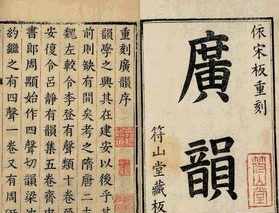 依宋板重刻
廣韻
符山堂藏板
符山堂
重刻廣韻序
韻學之興其在建安以後乎其
前則缺有間矣考之隋唐二志
魏左校令李登有聲類十卷晉
安復令呂靜有韻集五卷齊中
書郎周顒始作四聲切韻梁沈
約繼之有四聲一卷又有周思